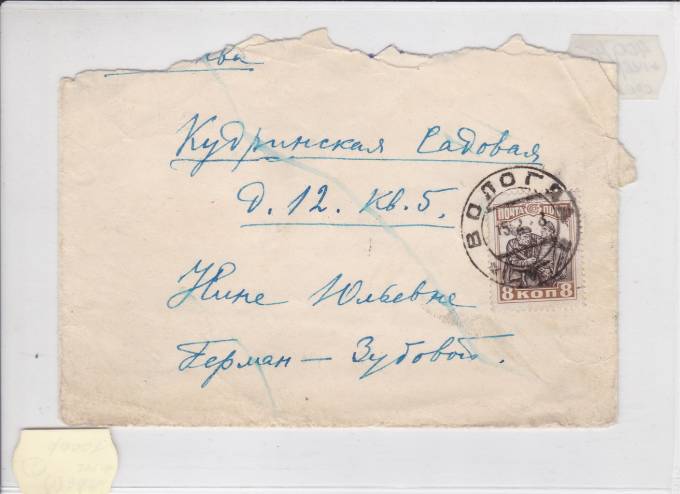 Кудринская Садовая
д. 12. кв. 5.
Нине Юльевне
Герман — Зубовой.
ВОЛОГДА
ПОЧТА
8 КОП 8